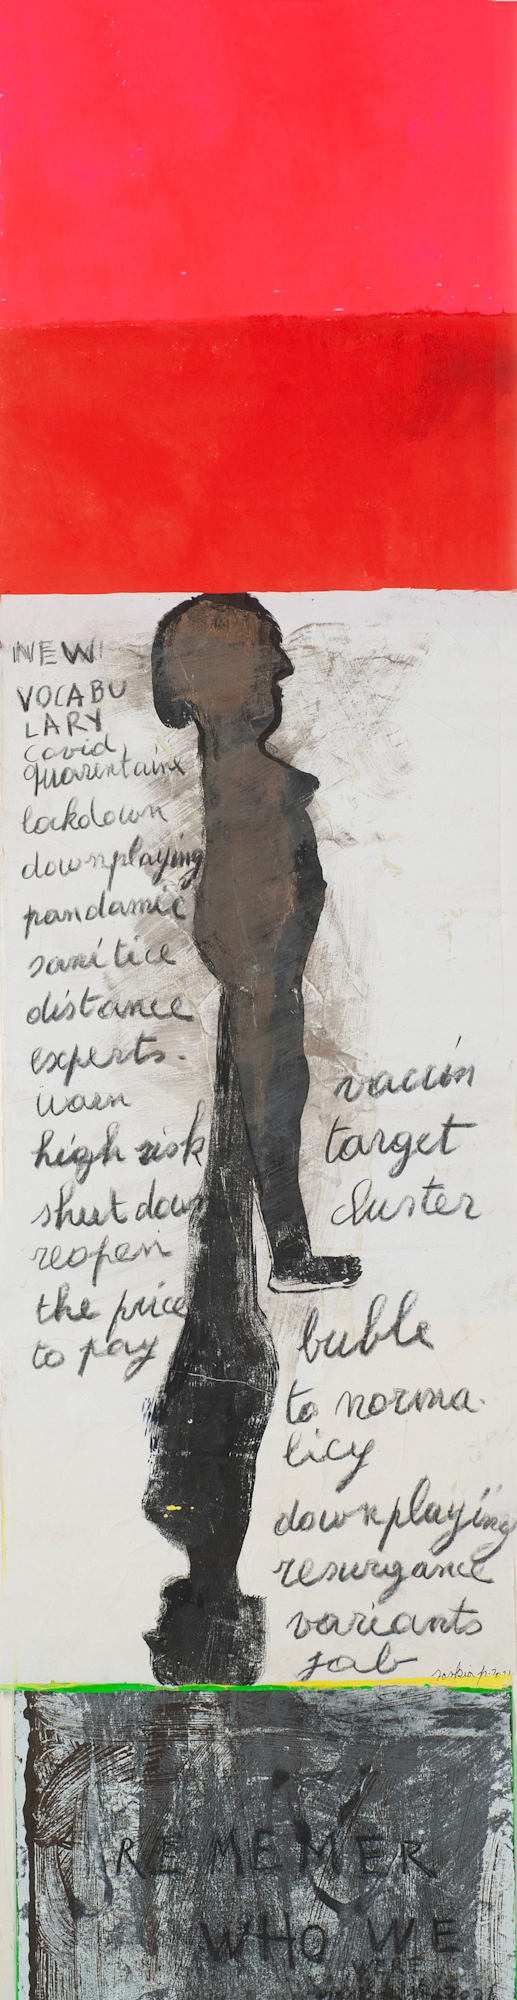 NEW
VOCABU
LARY
Covid
quarentaine
lockdown
downplaying
pandamic
sanitice
distance
experts.
warn
high risk
shut down
reopen
the price
to pay
vaccin
target
cluster
buble
to norma.
licy
downplaying
resurgance
variants
jab
saskia p. 2021
REMEMER
WHO WE
WERE